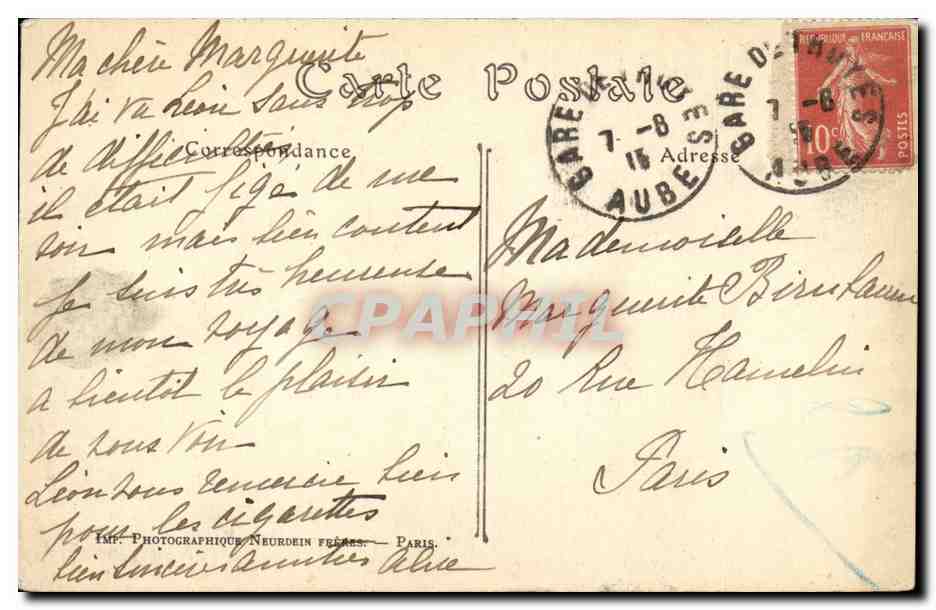 Carte Postale
Correspondance
Adresse
Ma chère Marguerite
J'ai vu Léon sans trop
de difficultés
il était figé de me
voir mais bien content
Je suis très heureuse
de mon voyage
a bientôt le plaisir
de vous voir
Léon vous remercie bien
pour les cigarettes
bien sincères amitiés Alice
IMP. PHOTOGRAPHIQUE NEURDEIN FRÈRES. — PARIS.
GARE DE TROYES
7 -8
15
AUBE
GARE DE TROYES
7 -8
AUBE
REPUBLIQUE FRANÇAISE
10c
POSTES
Mademoiselle
Marguerite
20 Rue Hamelin
Paris
CPAPHIL